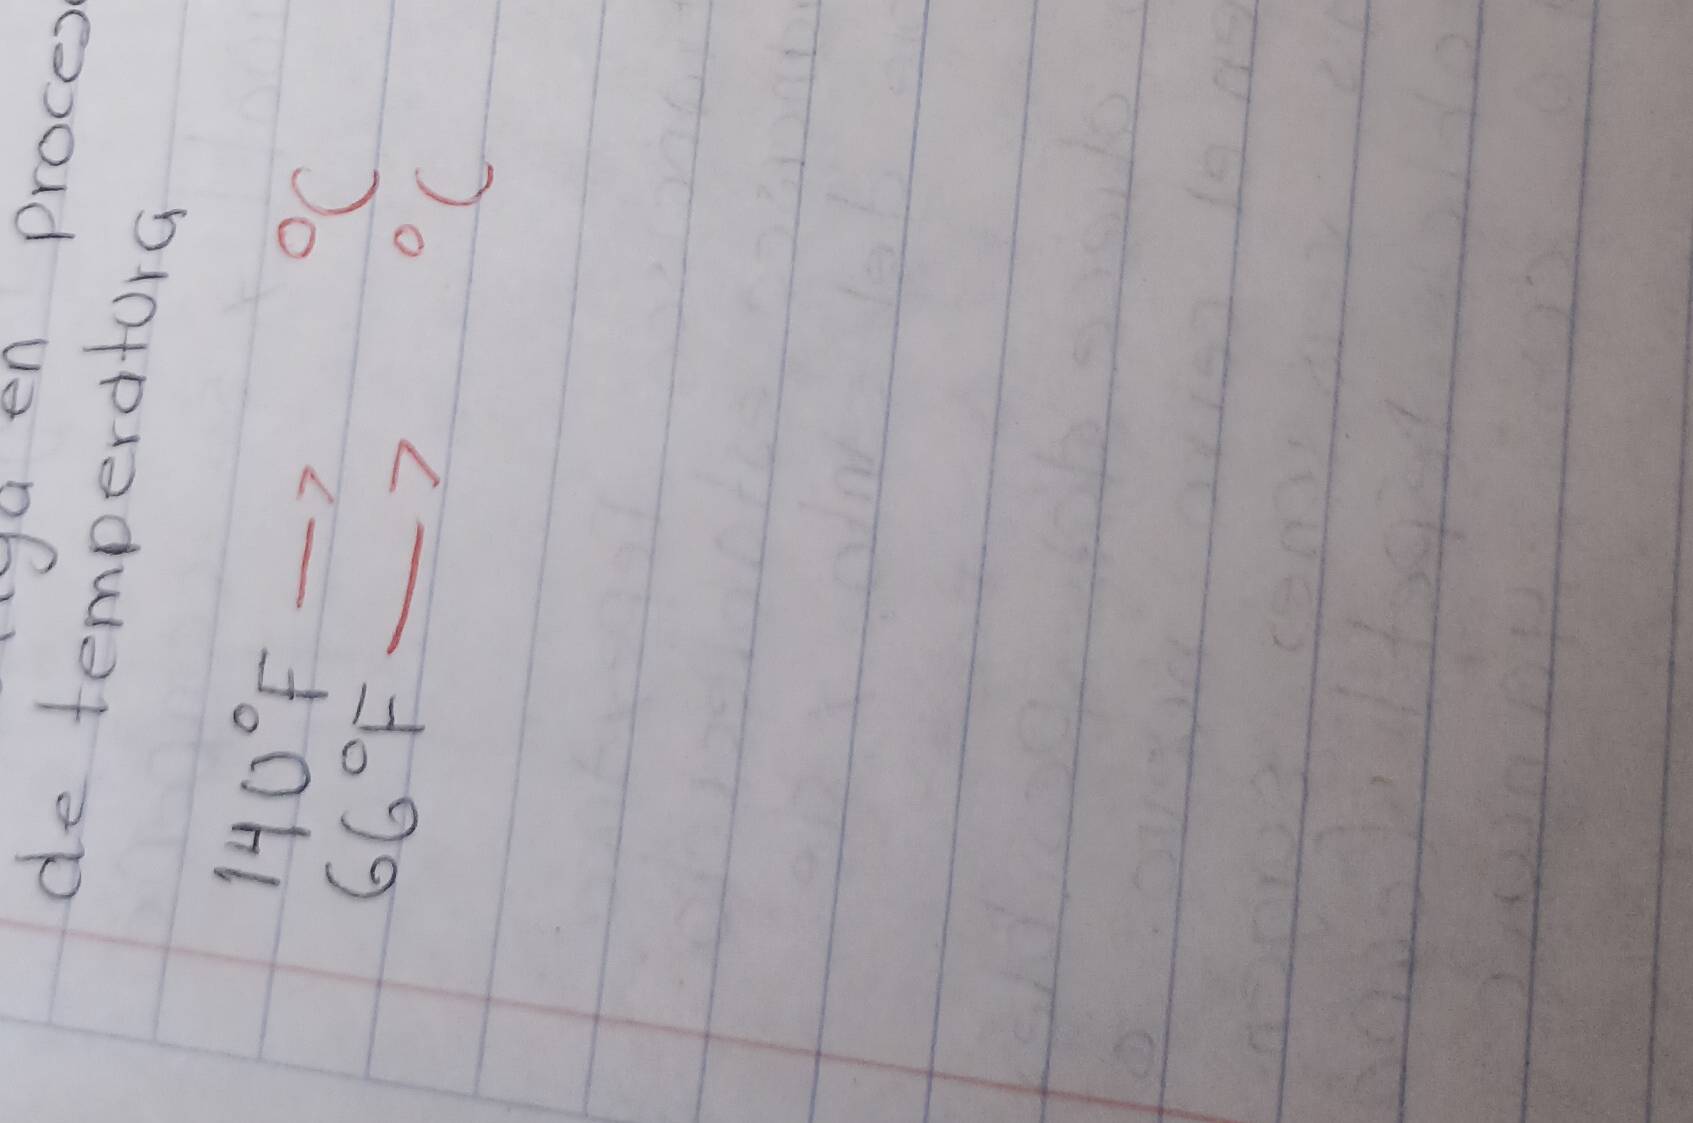 en proceso
de temperatura
140°F —> °C
66°F —> °C